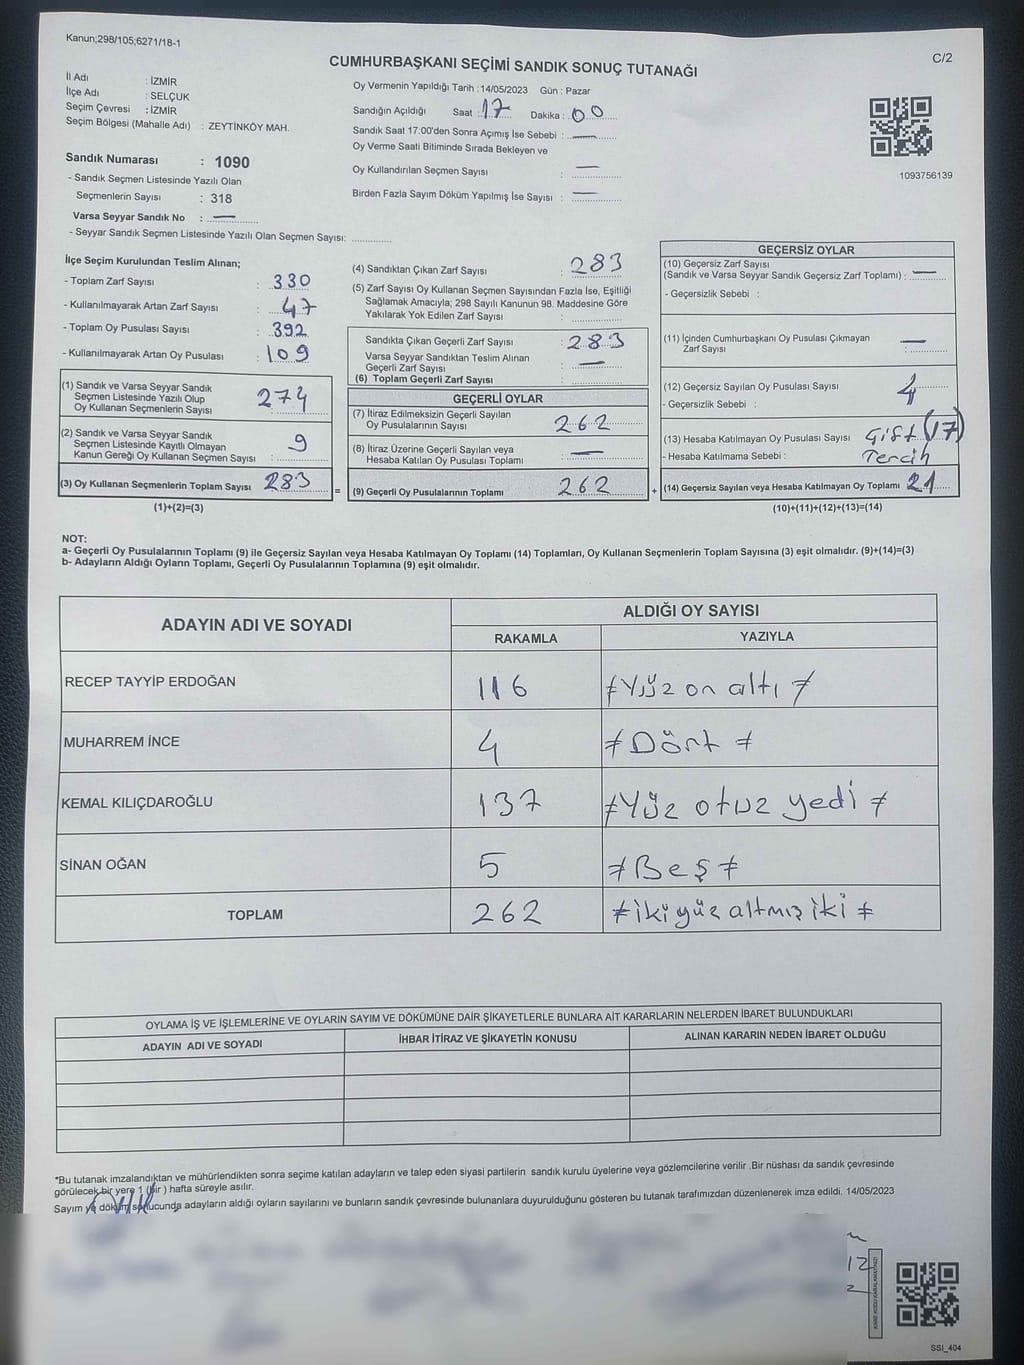 Kanun;298/105;6271/18-1
C/2
CUMHURBAŞKANI SEÇİMİ SANDIK SONUÇ TUTANAĞI
İl Adı : İZMİR
İlçe Adı : SELÇUK
Seçim Çevresi : İZMİR
Seçim Bölgesi (Mahalle Adı) : ZEYTİNKÖY MAH.
Sandık Numarası : 1090
- Sandık Seçmen Listesinde Yazılı Olan
Seçmenlerin Sayısı : 318
Varsa Seyyar Sandık No : —
- Seyyar Sandık Seçmen Listesinde Yazılı Olan Seçmen Sayısı:
Oy Vermenin Yapıldığı Tarih :14/05/2023 Gün : Pazar
Sandığın Açıldığı Saat : 17 Dakika : 00
Sandık Saat 17:00'den Sonra Açımış İse Sebebi : —
Oy Verme Saati Bitiminde Sırada Bekleyen ve
Oy Kullandırılan Seçmen Sayısı : —
Birden Fazla Sayım Döküm Yapılmış İse Sayısı : —
1093756139
İlçe Seçim Kurulundan Teslim Alınan;
- Toplam Zarf Sayısı : 330
- Kullanılmayarak Artan Zarf Sayısı : 47
- Toplam Oy Pusulası Sayısı : 392
- Kullanılmayarak Artan Oy Pusulası : 109
(1) Sandık ve Varsa Seyyar Sandık
Seçmen Listesinde Yazılı Olup
Oy Kullanan Seçmenlerin Sayısı : 274
(2) Sandık ve Varsa Seyyar Sandık
Seçmen Listesinde Kayıtlı Olmayan
Kanun Gereği Oy Kullanan Seçmen Sayısı : 9
(3) Oy Kullanan Seçmenlerin Toplam Sayısı 283
(1)+(2)=(3)
(4) Sandıktan Çıkan Zarf Sayısı : 283
(5) Zarf Sayısı Oy Kullanan Seçmen Sayısından Fazla İse, Eşitliği
Sağlamak Amacıyla; 298 Sayılı Kanunun 98. Maddesine Göre
Yakılarak Yok Edilen Zarf Sayısı :
Sandıkta Çıkan Geçerli Zarf Sayısı : 283
Varsa Seyyar Sandıktan Teslim Alınan
Geçerli Zarf Sayısı : —
(6) Toplam Geçerli Zarf Sayısı :
GEÇERLİ OYLAR
(7) İtiraz Edilmeksizin Geçerli Sayılan
Oy Pusulalarının Sayısı : 262
(8) İtiraz Üzerine Geçerli Sayılan veya
Hesaba Katılan Oy Pusulası Toplamı : —
= (9) Geçerli Oy Pusulalarının Toplamı 262 +
GEÇERSİZ OYLAR
(10) Geçersiz Zarf Sayısı
(Sandık ve Varsa Seyyar Sandık Geçersiz Zarf Toplamı) : —
- Geçersizlik Sebebi :
(11) İçinden Cumhurbaşkanı Oy Pusulası Çıkmayan
Zarf Sayısı : —
(12) Geçersiz Sayılan Oy Pusulası Sayısı : 4
- Geçersizlik Sebebi :
(13) Hesaba Katılmayan Oy Pusulası Sayısı : Çift (17)
- Hesaba Katılmama Sebebi : Tercih
(14) Geçersiz Sayılan veya Hesaba Katılmayan Oy Toplamı 21
(10)+(11)+(12)+(13)=(14)
NOT:
a- Geçerli Oy Pusulalarının Toplamı (9) ile Geçersiz Sayılan veya Hesaba Katılmayan Oy Toplamı (14) Toplamları, Oy Kullanan Seçmenlerin Toplam Sayısına (3) eşit olmalıdır. (9)+(14)=(3)
b- Adayların Aldığı Oyların Toplamı, Geçerli Oy Pusulalarının Toplamına (9) eşit olmalıdır.
ADAYIN ADI VE SOYADI
ALDIĞI OY SAYISI
RAKAMLA YAZIYLA
RECEP TAYYİP ERDOĞAN 116 ≠ Yüz on altı ≠
MUHARREM İNCE 4 ≠ Dört ≠
KEMAL KILIÇDAROĞLU 137 ≠ Yüz otuz yedi ≠
SİNAN OĞAN 5 ≠ Beş ≠
TOPLAM 262 ≠ iki yüz altmış iki ≠
OYLAMA İŞ VE İŞLEMLERİNE VE OYLARIN SAYIM VE DÖKÜMÜNE DAİR ŞİKAYETLERLE BUNLARA AİT KARARLARIN NELERDEN İBARET BULUNDUKLARI
ADAYIN ADI VE SOYADI İHBAR İTİRAZ VE ŞİKAYETİN KONUSU ALINAN KARARIN NEDEN İBARET OLDUĞU
*Bu tutanak imzalandıktan ve mühürlendikten sonra seçime katılan adayların ve talep eden siyasi partilerin sandık kurulu üyelerine veya gözlemcilerine verilir .Bir nüshası da sandık çevresinde
görülecek bir yere 1 (bir ) hafta süreyle asılır.
Sayım ve döküm sonucunda adayların aldığı oyların sayılarını ve bunların sandık çevresinde bulunanlara duyurulduğunu gösteren bu tutanak tarafımızdan düzenlenerek imza edildi. 14/05/2023
12
2
SSI_404